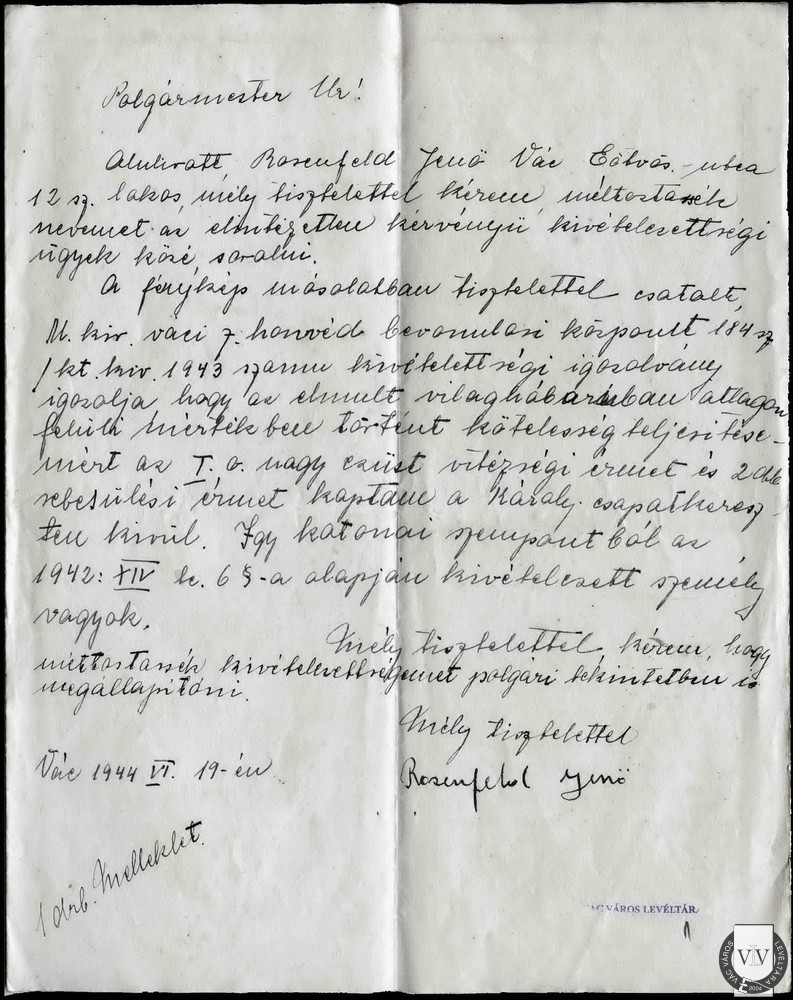 Polgármester Ur!
Alulirott, Rosenfeld Jenő Vác Eötvös-utca
12 sz. lakos, mély tisztelettel kérem, méltóztassék
nevemet az elintézetlen kérvényü kivételezettségi
ügyek közé sorolni.
A fénykép másolatban tisztelettel csatolt,
M. kir. váci 7. honvéd bevonulási központ 184 sz
/kt. kiv. 1943 számu kivételettségi igazolvány
igazolja hogy az elmult világháboruban átlagon
felüli mértékben történt kötelesség teljesitése-
mért az I. o. nagy ezüst vitézségi érmet és 2 drb
sebesülési érmet kaptam a Károly csapatkeresz-
ten kivül. Igy katonai szempontból az
1942: XIV tc. 6 §-a alapján kivételezett személy
vagyok.
Mély tisztelettel kérem, hogy
méltóztassék kivételezettségemet polgári tekintetben is
megállapitani.
Mély tisztelettel
Vác 1944 VI. 19-én
Rosenfeld Jenő
1 drb. Melléklet.
VÁC VÁROS LEVÉLTÁRA
VÁC VÁROS LEVÉLTÁRA
VV
2004